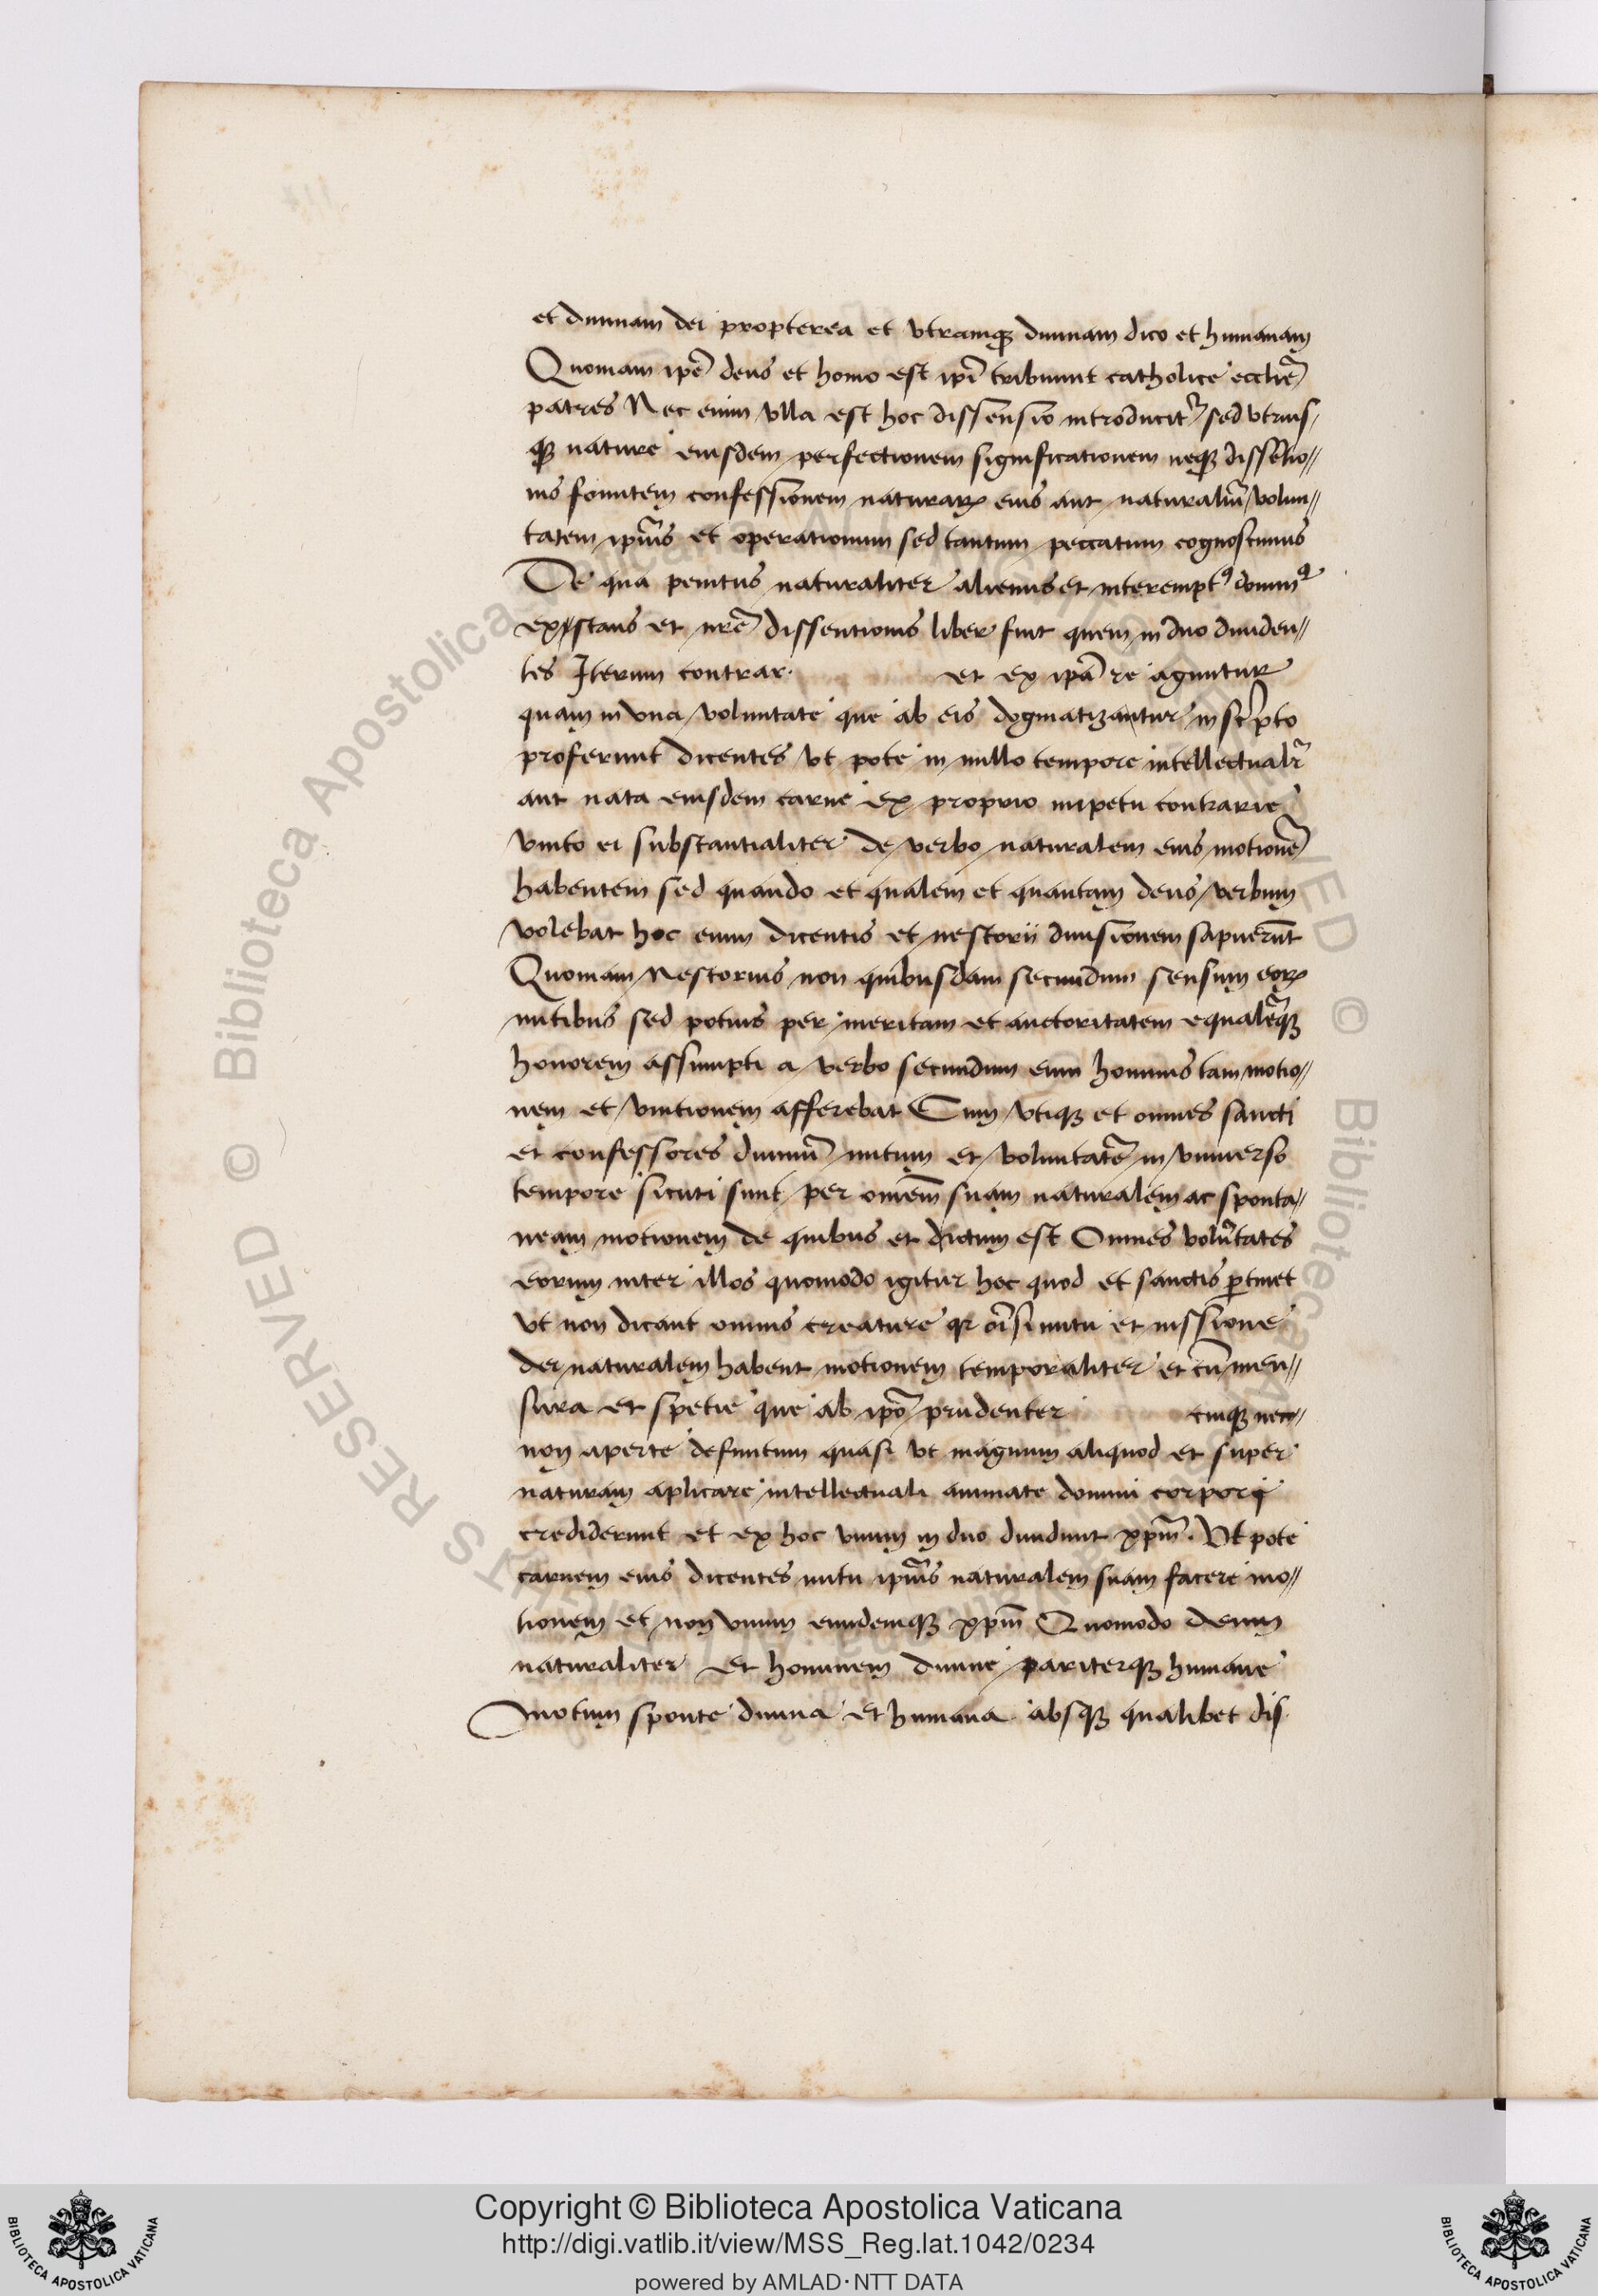 et diuinam dei propterea et vtramq₃ diuinam dico et humanam
Quoniam ipē deus et homo est ipī tribuunt catholice eccliē
patres Nec enim vlla est hoc dissensio introducitr̃ sed vtrius,
q₃ nature eiusdem perfectionem significationem neq₃ dissēsio//
nis fontem confessionem naturaꝝ eius aut naturaliū volun//
tatem ipiūs et operationum sed tantum peccatum cognoscimus
De qua penitus naturaliter alienus et interemptꝰ
existans et nrē dissentionis liber fuit quem in duo diuiden//
tes Iterum contrar. et ex ipā re aguntur
quam in vna voluntate que ab eis dogmatizantur in scripto
proferunt dicentes vt pote in nullo tempore intellectualr̃
aut nata eiusdem carne ex proprio impetu contrarie
vnito ei substantialiter de verbo naturalem eius motionē
habentem sed quando et qualem et quantam deus verbum
volebat hoc enim dicentis et nestorii diuisionem sapuerūt
Quoniam Nestorius non quibusdam secundum sensum eoꝝ
nutibus sed potius per meritam et auctoritatem equalēq₃
honorem assumpti a verbo secundum eum hominis tam motio//
nem et vnitionem afferebat Cum vtiq₃ et omnes sancti
et confessores diuinū nutum et voluntatē in vniuerso
tempore sicuti sunt per omēm suam naturalem ac sponta//
neam motionem de quibus et dictum est Omnes volūtates
eorum inter illos quomodo igitur hoc quod et sanctis ꝑtinet
vt non dicant omnis creature nutu et iussione
dei naturalem habent motionem temporaliter et cū men//
sura et spetie que ab ipō prudenter eiusq₃ nec//
non aperte definitum quasi vt magnum aliquod et super
naturam aplicare intellectuali animate domini corpori
crediderunt et ex hoc vnum in duo diuidunt xpm̄. Vt pote
carnem eius dicentes nutu ipiūs naturalem suam facere mo//
tionem et non vnum eundemq₃ xpm̄ Quomodo deum
naturaliter et hominem diuine pariterq₃ humane
motum sponte diuina et humana absq₃ qualibet dis
Copyright © Biblioteca Apostolica Vaticana
http://digi.vatlib.it/view/MSS_Reg.lat.1042/0234
powered by AMLAD·NTT DATA